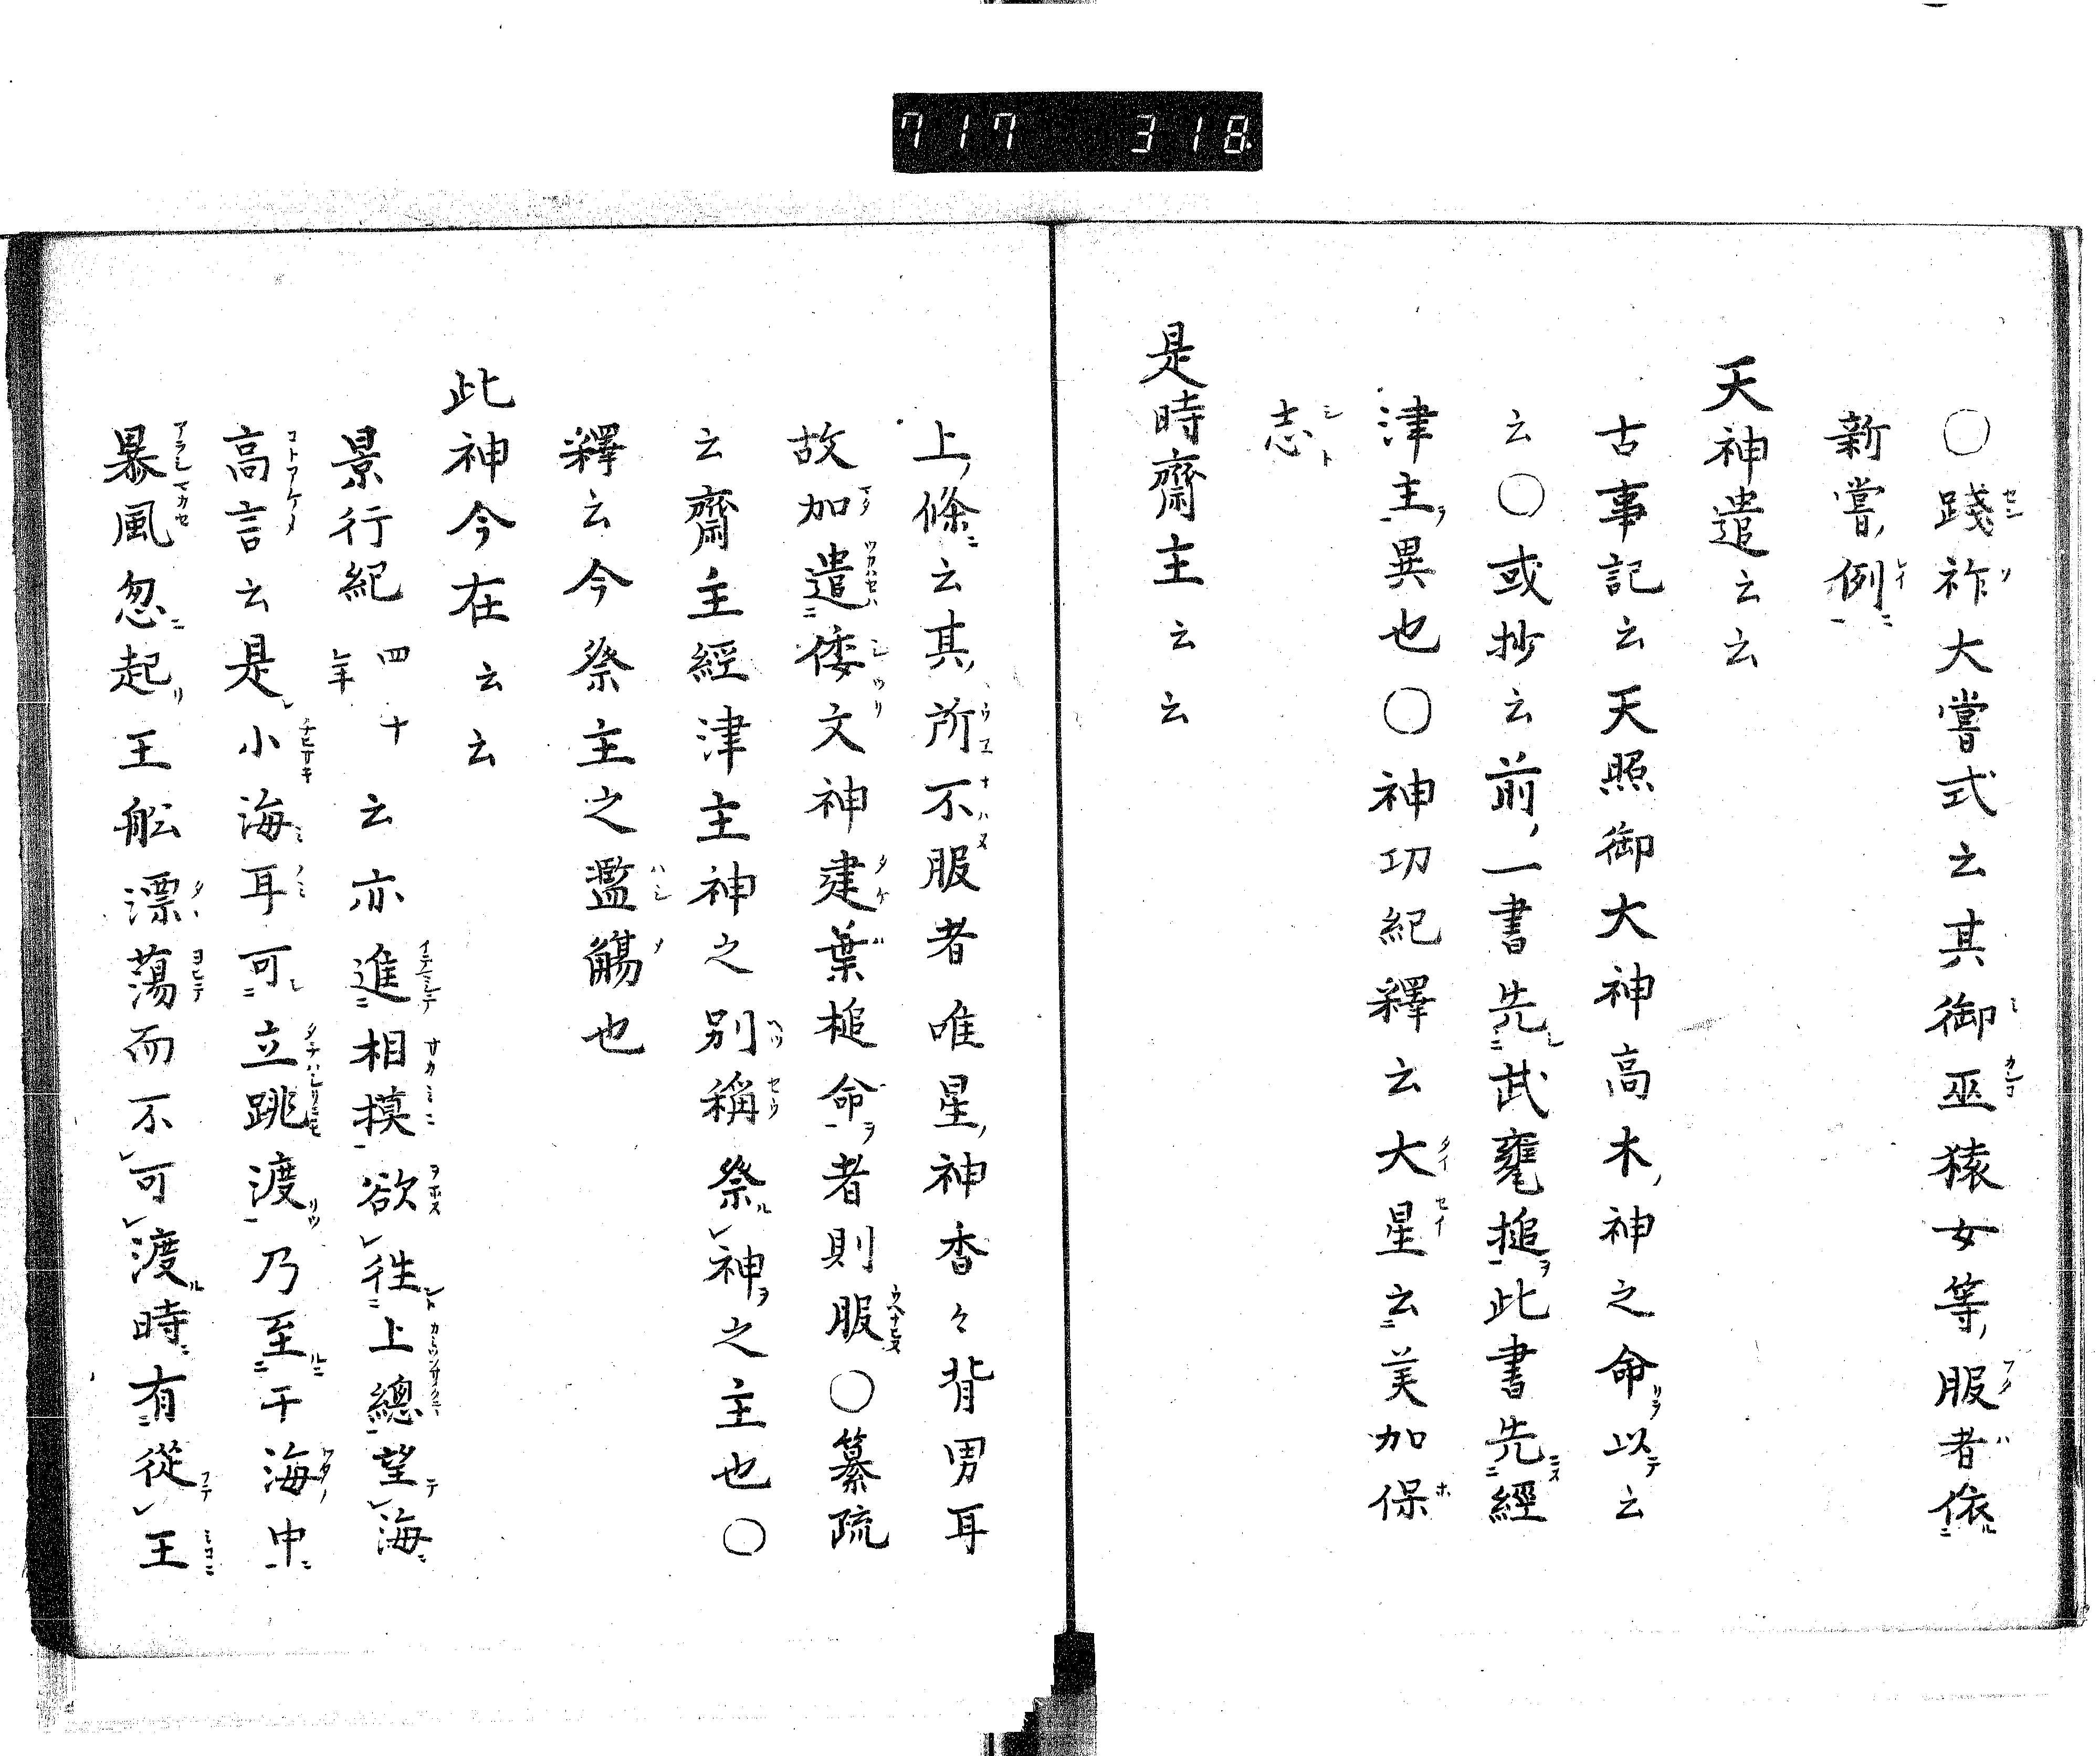 717 318
〇踐祚大嘗式云其御巫猿女等服者依
新嘗例
天神遣云云
古事記云天照御大神高木神之命以云
云〇或抄云前一書先武甕搥此書先經
津主異也〇神功紀釋云大星云美加保
志
是時齋主云云
上條云其所不服者唯星神香々背男耳
故加遣倭文神建葉槌命者則服〇纂疏
云齋主經津主神之別稱祭神之主也〇
釋云今祭主之濫觴也
此神今在云云
景行紀四十年云亦進相摸欲往上總望海
高言云是小海耳可立跳渡乃至于海中
暴風忽起王船漂蕩而不可渡時有從王